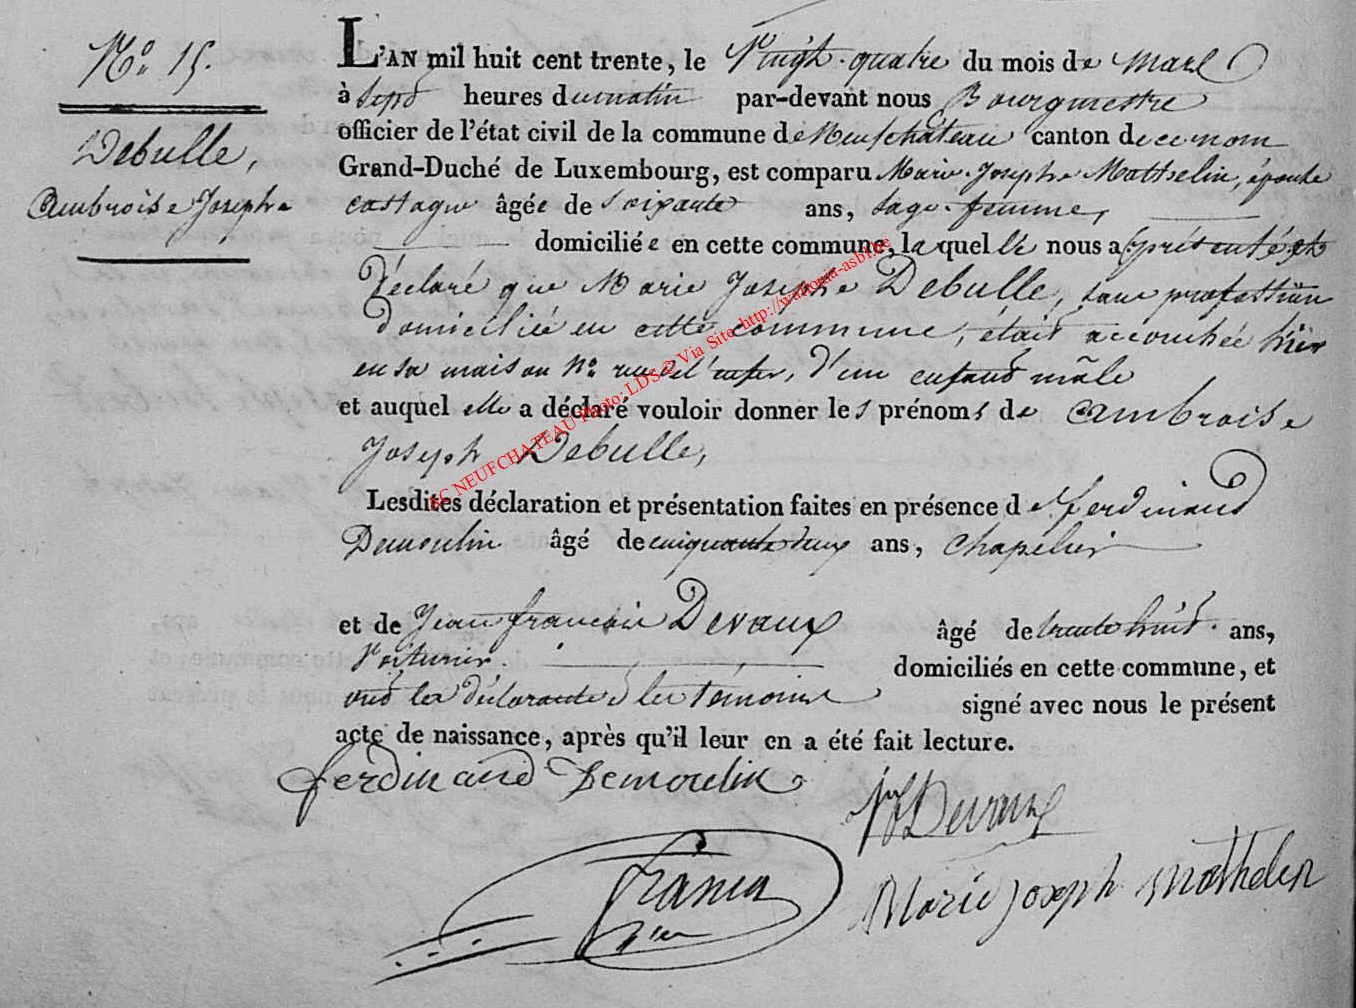 N.° 15.
Debulle,
Ambroise Joseph
L'AN mil huit cent trente, le Vingt-quatre du mois de Mars
à sept heures du matin par-devant nous Bourgmestre
officier de l'état civil de la commune de Neufchateau canton de ce nom
Grand-Duché de Luxembourg, est comparu Marie Joseph Mathelin, épouse
castagne âgée de soixante ans, sage-femme,
domiciliée en cette commune, laquelle nous a présenté et
Déclaré que Marie Josephe Debulle, sans profession
domiciliée en cette commune, était accouchée hier
en sa maison N.° rue de l'enfer, d'un enfant mâle
et auquel elle a déclaré vouloir donner les prénoms de Ambroise
Joseph Debulle,
Lesdites déclaration et présentation faites en présence de Ferdinand
Demoulin âgé de cinquante deux ans, chapelier
et de Jean françois Devaux âgé de trente huit ans,
Voiturier. domiciliés en cette commune, et
ont les déclarante & les témoins signé avec nous le présent
acte de naissance, après qu'il leur en a été fait lecture.
ferdinand Demoulin
Devaux
Marie joseph mathelin
EC NEUFCHATEAU Photo: LDS@ Via Site: http://wallonia-asbl.be